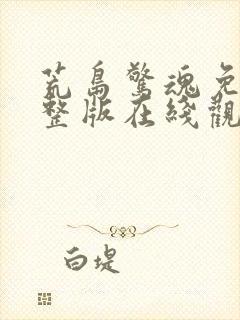 荒島驚魂免
整版在綫觀
白堤